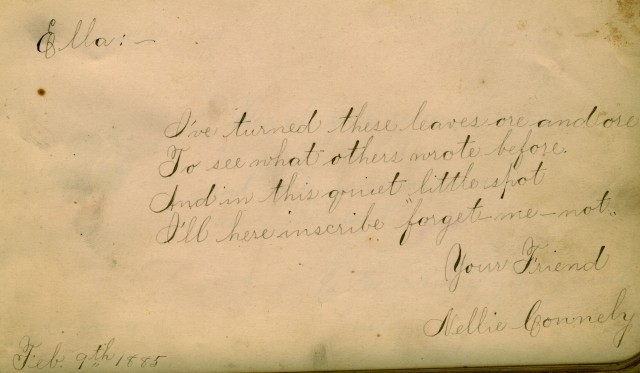 Ella:—
I've turned these leaves ore and ore
To see what others wrote before.
And in this quiet little spot
I'll here inscribe "forget-me-not".
Your Friend
Nellie Connely
Feb. 9th 1885